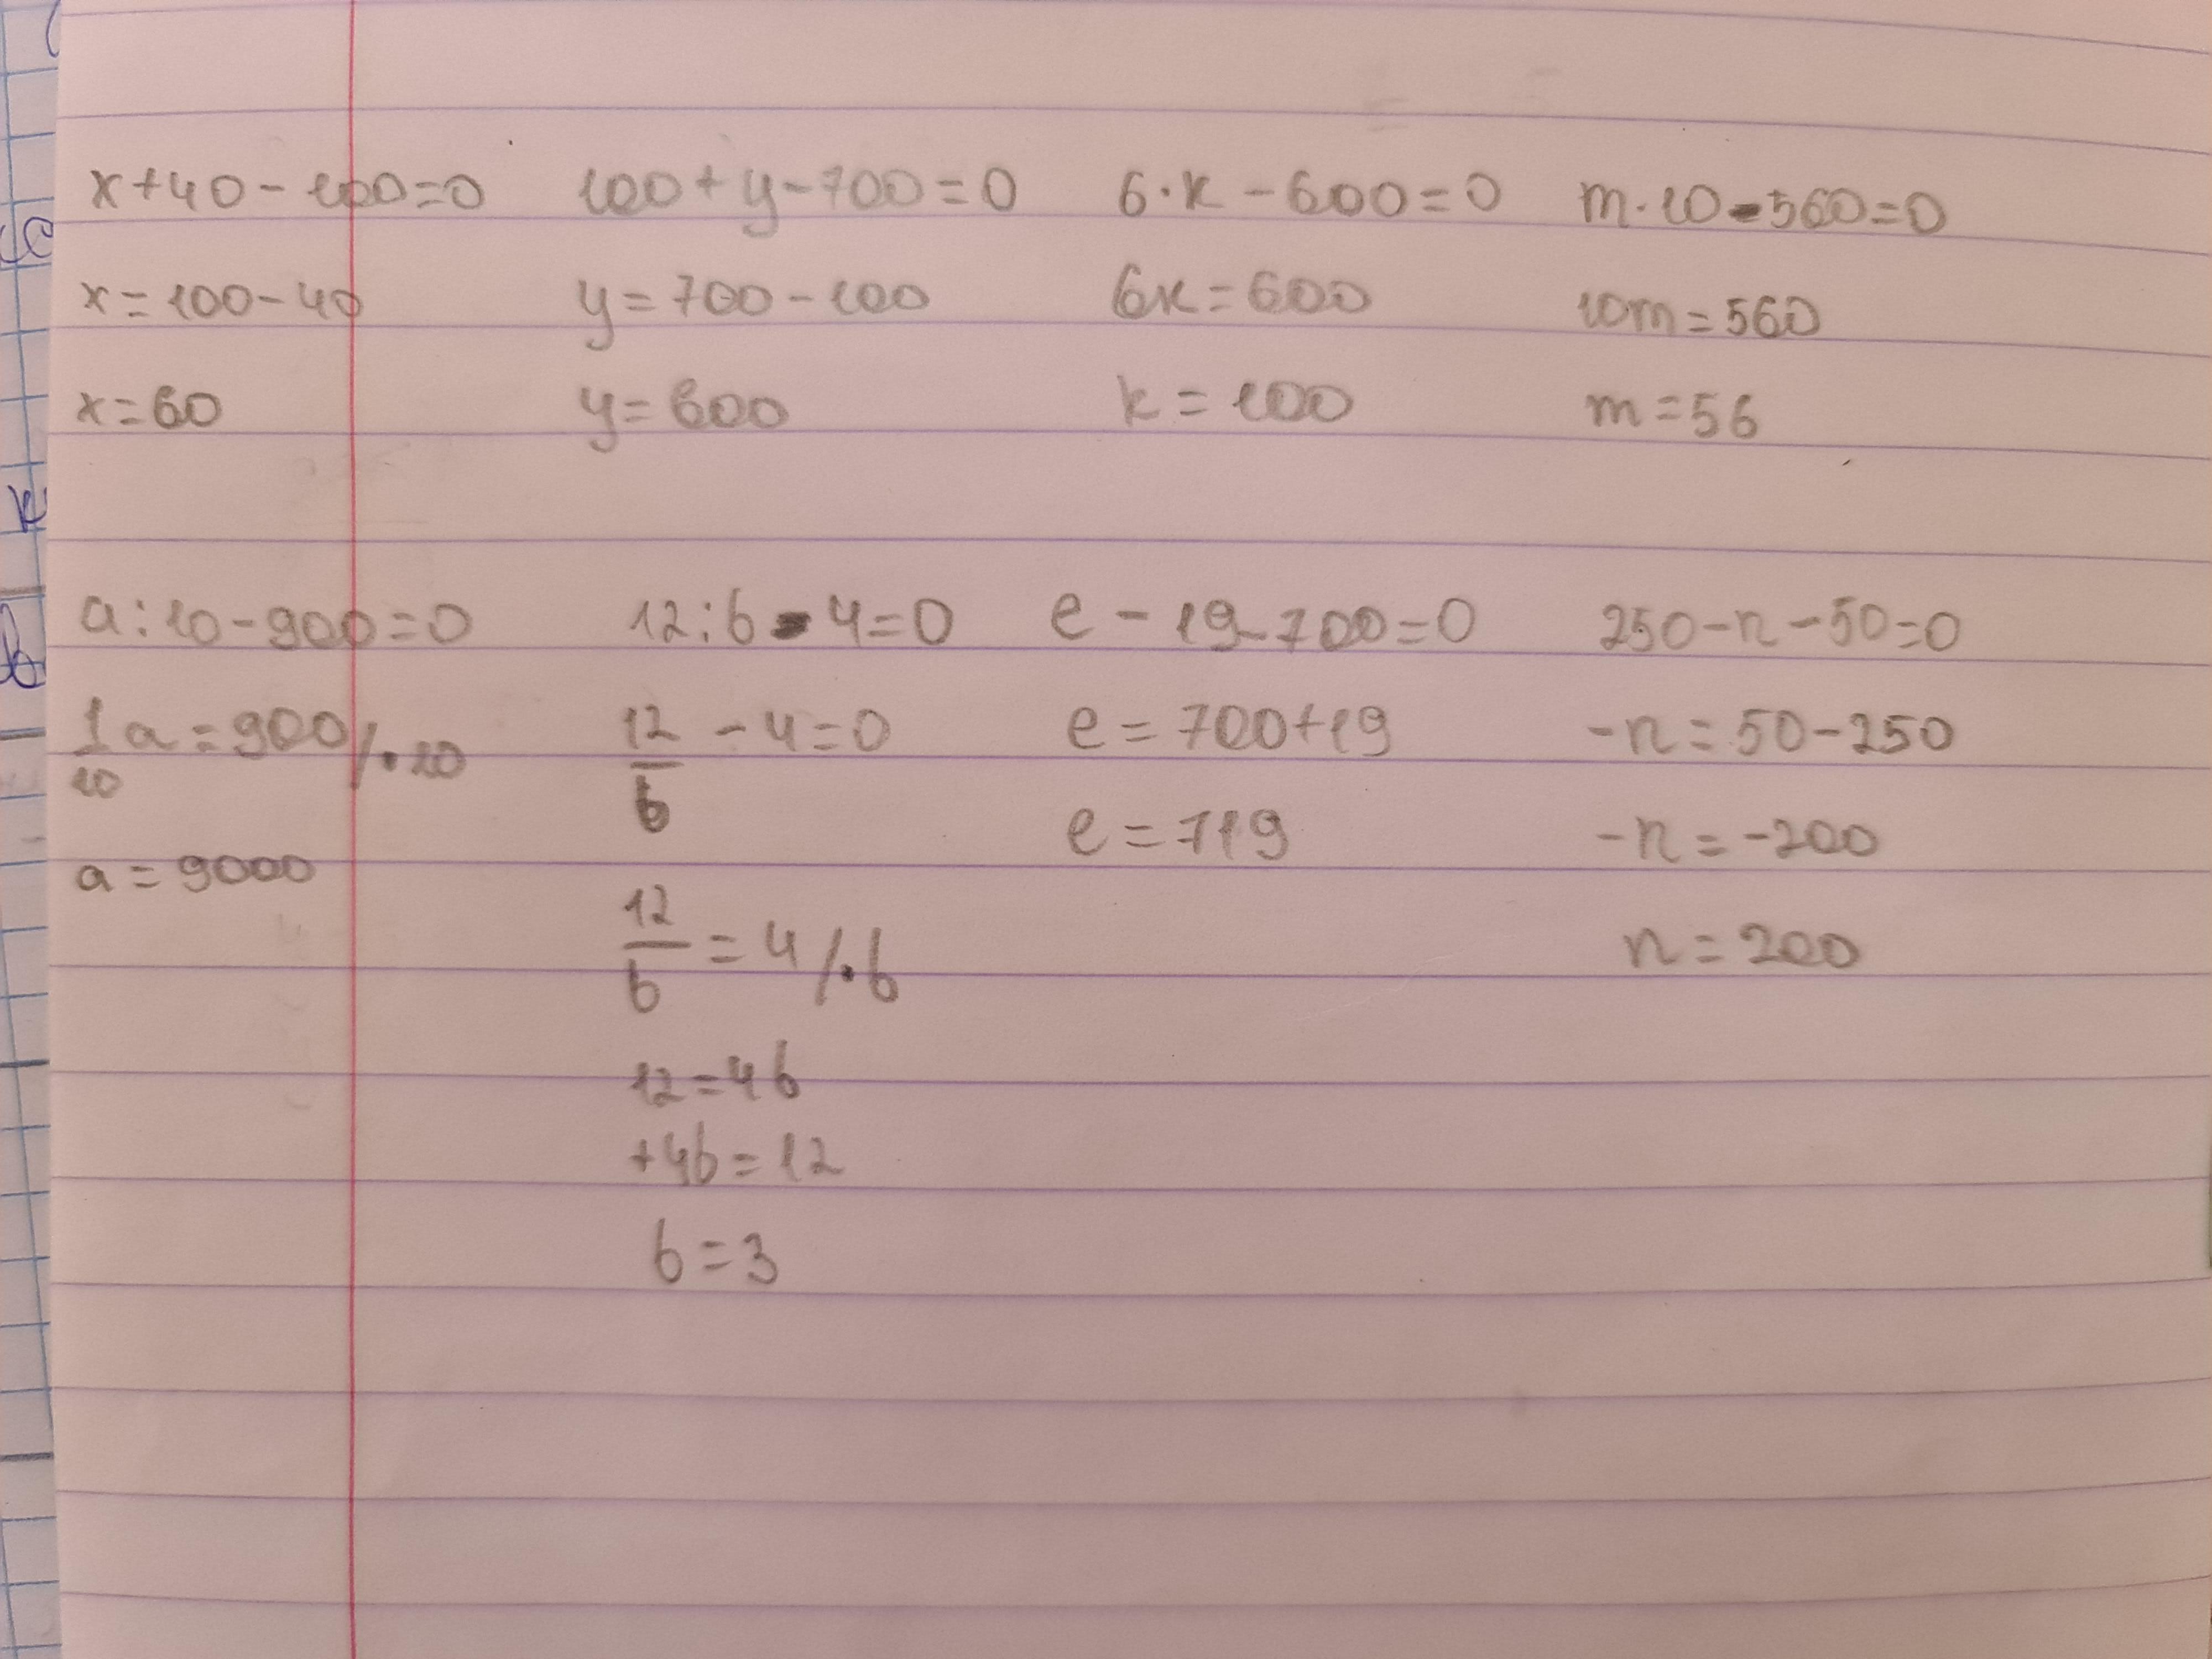 x+40-100=0 100+y-700=0 6·k-600=0 m·10-560=0
x=100-40 y=700-100 6k=600 10m=560
x=60 y=600 k=100 m=56
a:10-900=0 12:b-4=0 e-19-700=0 250-n-50=0
1/10 a=900/·10 12/b -4=0 e=700+19 -n=50-250
a=9000 e=719 -n=-200
12/b =4/·b n=200
12=4b
+4b=12
b=3